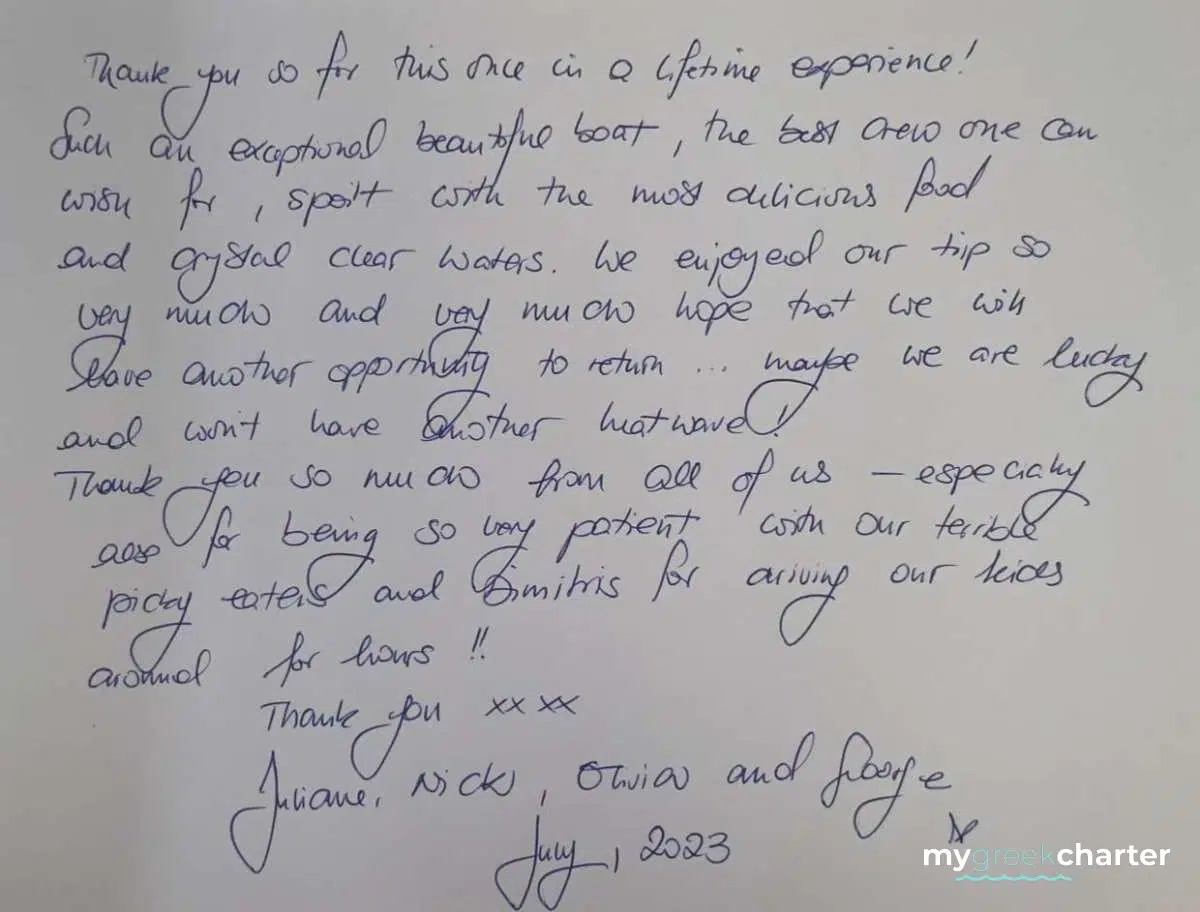 Thank you so for this once in a lifetime experience!
Such an exceptional beautiful boat, the best crew one can
wish for, spoilt with the most delicious food
and crystal clear waters. We enjoyed our tip so
very much and very much hope that we will
have another opportunity to return ... maybe we are lucky
and won't have another heatwave!
Thank you so much from all of us – especially
also for being so very patient with our terrible
picky eaters and Dimitris for driving our kids
around for hours !!
Thank you xx xx
Juliane, Nick, Olivia and George
x
July, 2023
mygreekcharter